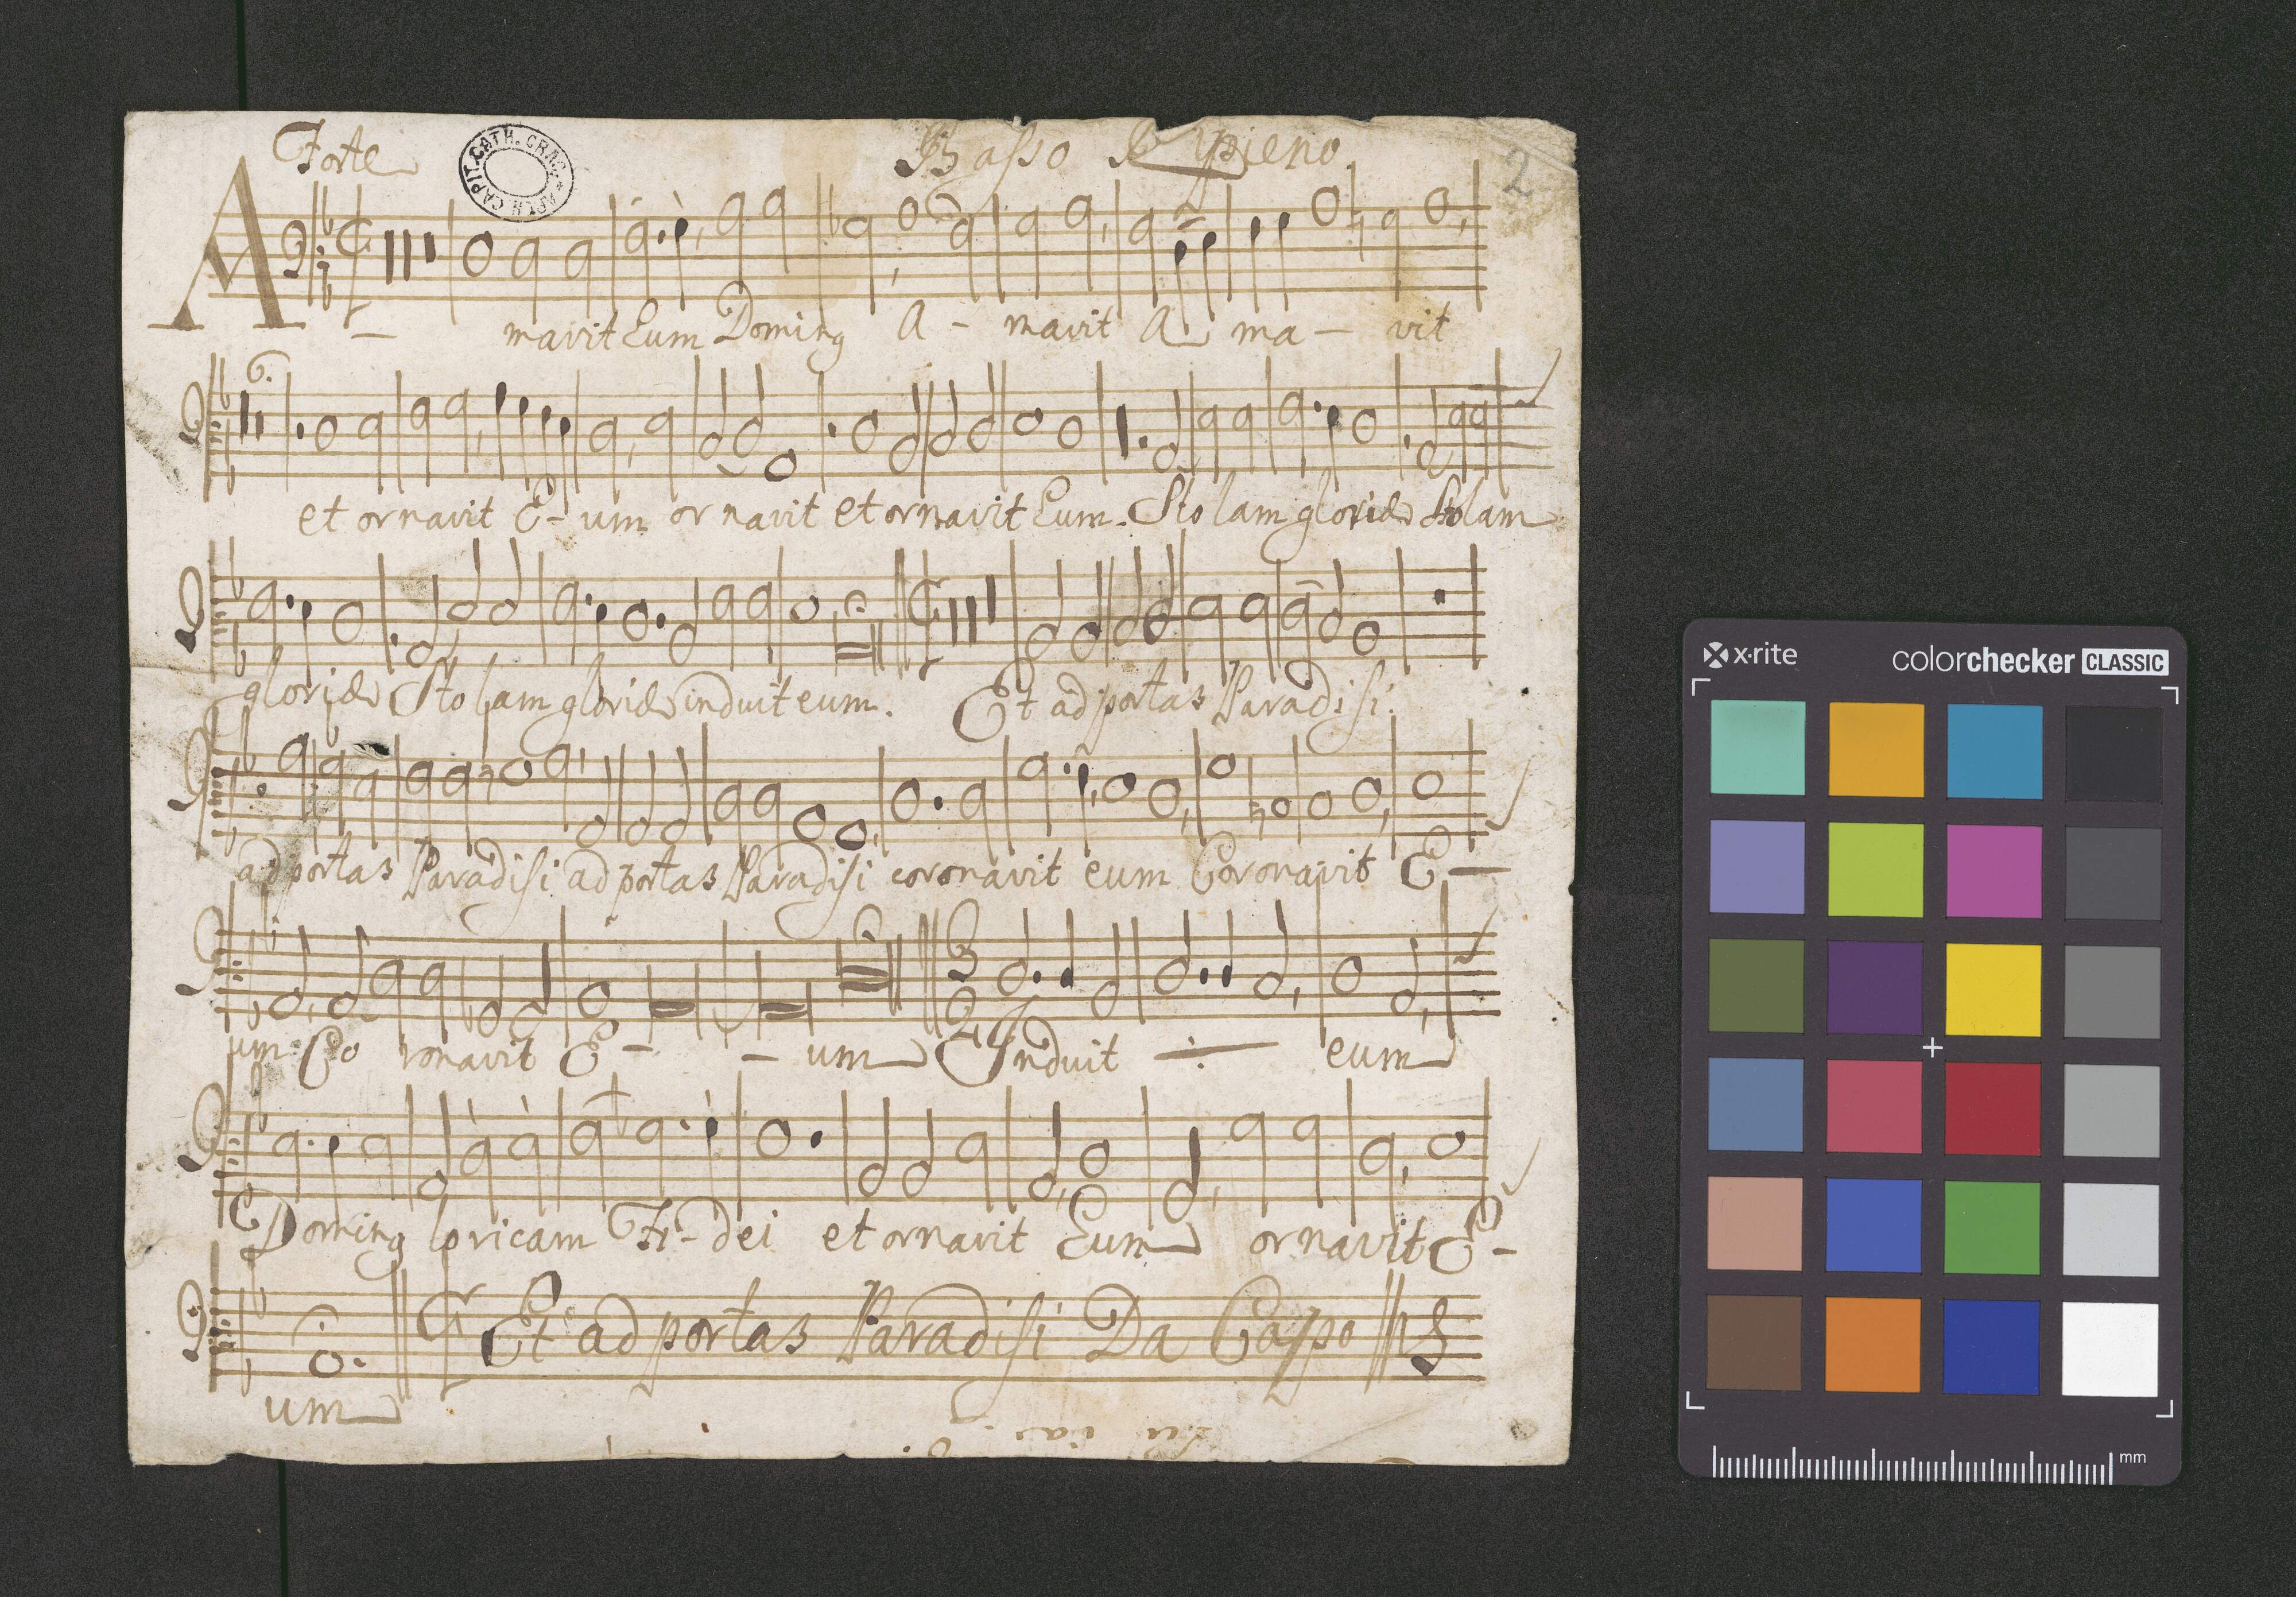 Forte Basso Rypieno 2
ARCH. CAPIT. CATH. CRAC.
A - mavit Eum Doming A - mavit A ma - vit
6.
et ornavit E - um or navit et ornavit Eum. Sto lam gloriæ Stolam
gloriæ Sto lam gloriæ induit eum. Et ad portas Paradisi.
ad portas Paradisi ad portas Paradisi coronavit eum Coronavit E -
3
2
um Co ronavit E - - um Induit ÷ eum
Doming loricam Fi - dei et ornavit Eum ornavit E -
Et ad portas Paradisi Da Capo
um
x·rite colorchecker CLASSIC
mm